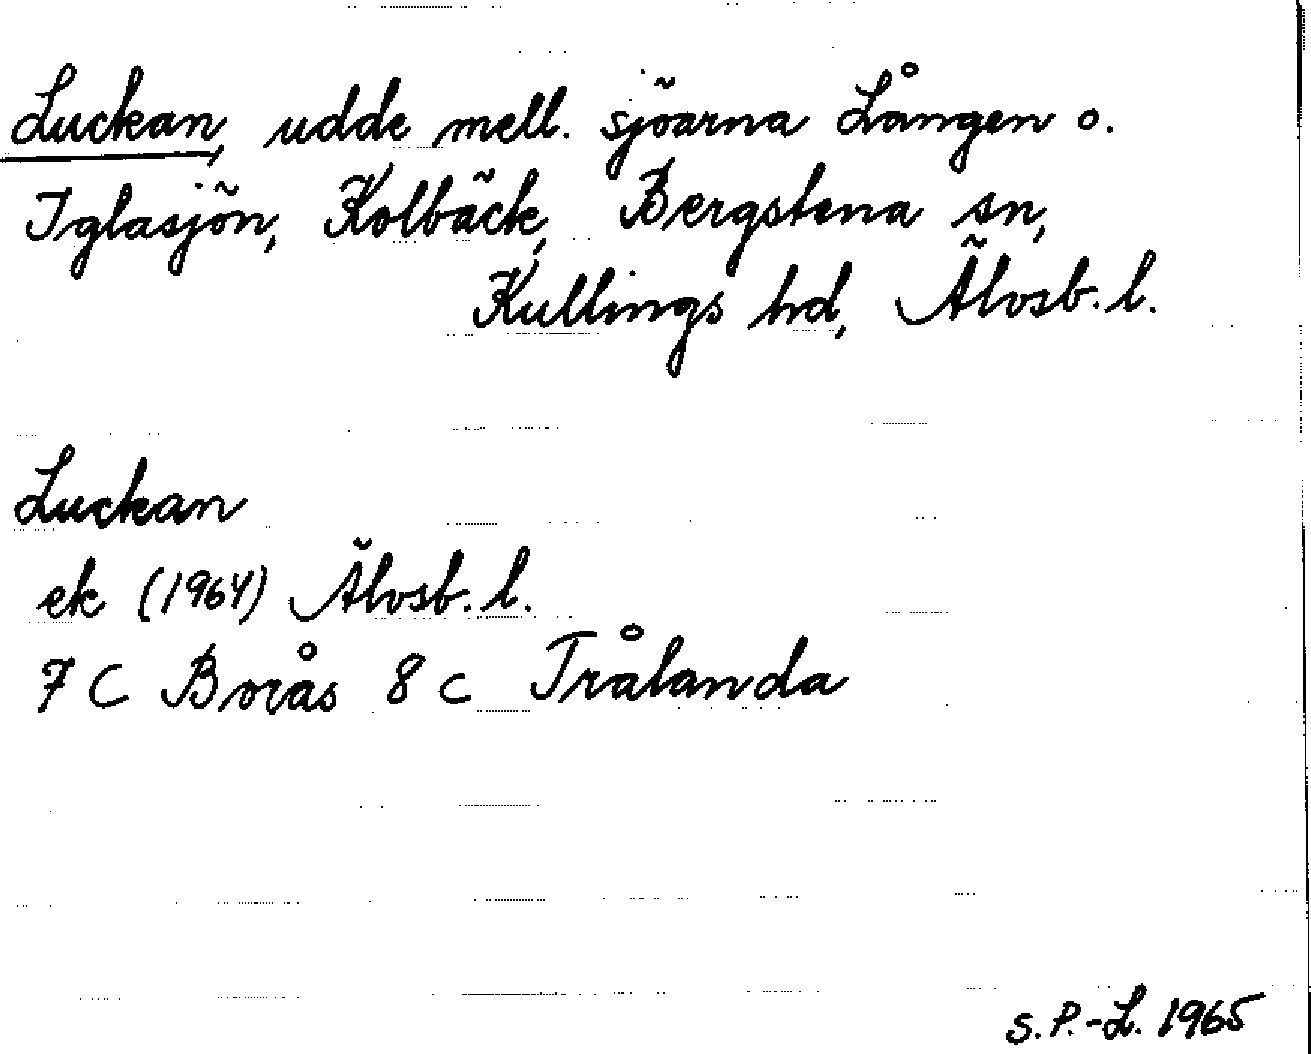 Luckan, udde mell. sjöarna Lången o.
Iglasjön, Kolbäck, Bergstena sn,
Kullings hd, Älvsb. l.
Luckan
ek (1964) Älvsb. l.
7 C Borås 8 c Trålanda
S. P.-L. 1965